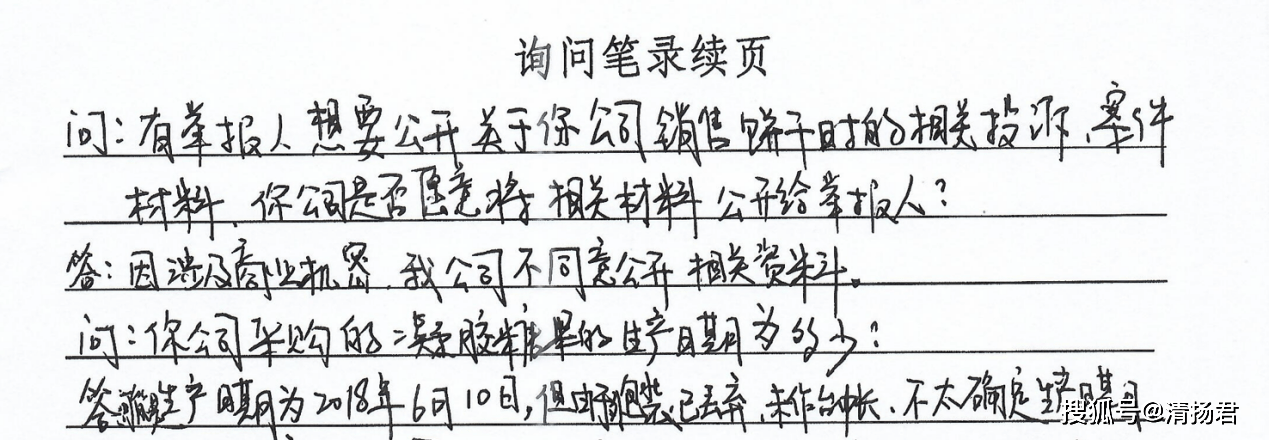 询问笔录续页
问：有举报人想要公开关于你公司销售饼干时的相关投诉、案件
材料，你公司是否愿意将相关材料公开给举报人？
答：因涉及商业机密，我公司不同意公开相关资料。
问：你公司采购的凝胶糖果的生产日期为多少？
答：生产日期为2018年6月10日，但由于包装已丢弃，未作台帐，不太确定生产日期
搜狐号@清扬君